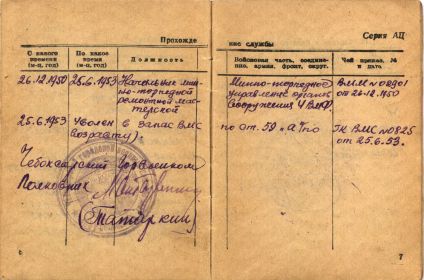 Прохожде
ние службы
Серия АЦ
С какого времени (м-ц, год)
По какое время (м-ц, год)
Должность
Войсковая часть, соединение, армия, фронт, округ.
Чей приказ, № и дата
26.12.1950
25.6.1953
Начальник мин-
но-торпедной
ремонтной мас-
терской
25.6.1953
Уволен в запас ВМС
возрасту).
Чебоксарский
Полковник
(Татаркин)
Минно-торпедное
управление
Вооружения ЧВМФ.
по ст. 59 п "а"
ВММ № 0901
от 26-12.1950
ГК ВМС № 0825
от 25.6.53.
6
7